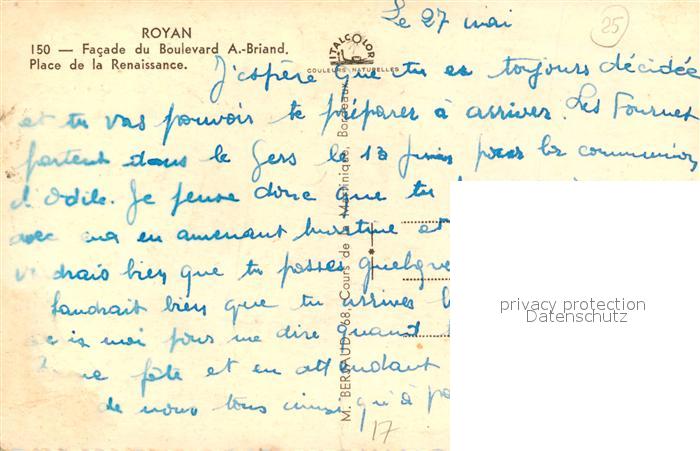 ROYAN
150 — Façade du Boulevard A.-Briand,
Place de la Renaissance.
ITALCOLOR
COULEURS NATURELLES
25
Le 27 mai
J'espère que tu es toujours décidée
et tu vas pouvoir te préparer à arriver. Les Fournet
partent dans le Gers le 13 juin pour la communion
d'Odile. Je pense donc que tu
avec en amenant et
drais bien que tu passes quelque
faudrait bien que tu arrives
moi pour me dire quand
fête et en attendant
de nous tous ainsi qu'à
17
M. BERGAUD, 68, Cours de la Martinique, Bordeaux
privacy protection
Datenschutz